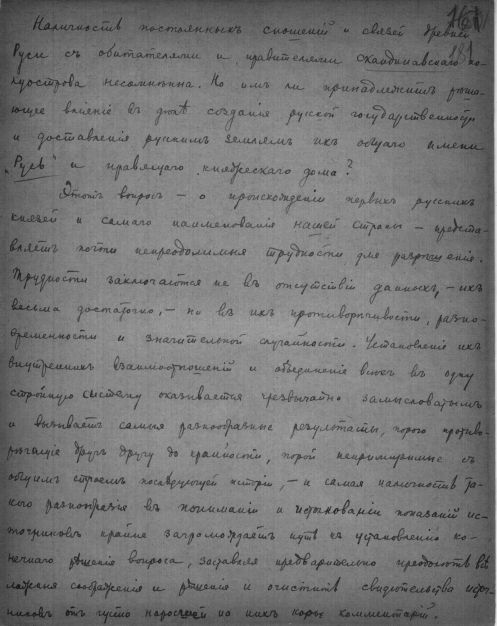 161
181
Наличность постоянныхъ сношеній и связей древней
Руси съ обитателями и правителями Скандинавскаго по-
луострова несомнѣнна. Но имъ ли принадлежитъ рѣша-
ющее вліяніе въ дѣлѣ созданія русской государственности
и доставленія русскимъ землямъ ихъ общаго имени
"Русь" и правящаго княжескаго дома?
Этотъ вопросъ – о происхожденіи первыхъ русскихъ
князей и самаго наименованія нашей страны – предста-
вляетъ почти непреодолимыя трудности для разрѣшенія.
Трудности заключаются не въ отсутствіи данныхъ, – ихъ
весьма достаточно, – но въ ихъ противорѣчивости, разно-
временности и значительной случайности. Установленіе ихъ
внутреннихъ взаимоотношеній и объединеніе всѣхъ въ одну
стройную систему оказывается чрезвычайно замысловатымъ
и вызываетъ самые разнообразные результаты, порою противо-
рѣчащіе другъ другу до крайности, порой непримиримые съ
общимъ строемъ послѣдующей исторіи, – и самая наличность та-
кого разнообразія въ пониманіи и истолкованіи показаній ис-
точниковъ крайне загромождаетъ путь къ установленію ко-
нечнаго рѣшенія вопроса, заставляя предварительно преодолѣть всѣ
ложныя соображенія и рѣшенія и очистить свидѣтельства источ-
никовъ отъ густо наросшей на нихъ коры комментарій.